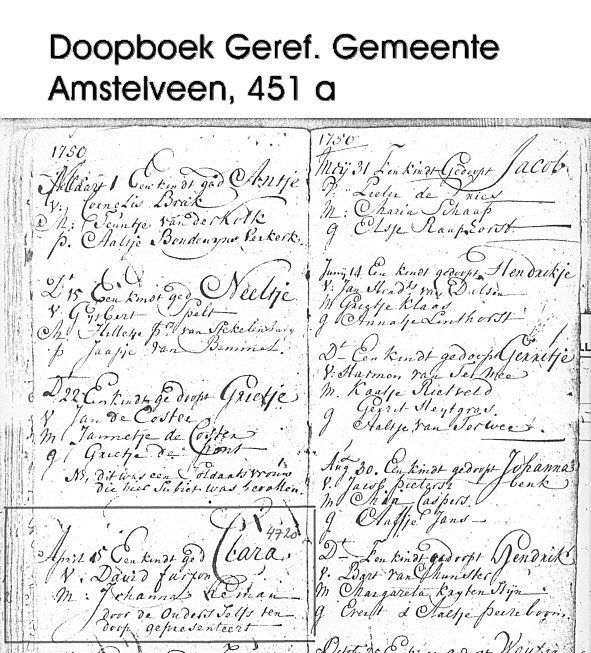 Doopboek Geref. Gemeente
Amstelveen, 451 a
1750
Maart 1 Een kindt ged Antje
V: Cornelis Brak
M: Teuntje van der Kolk
p. Aaltje Boudewyns Verkerk
Dt 15 Een kindt ged Neeltje
V Gysbert Spelt
M Hilletje van Stekelenburg
p Jaapje van Bemmel.
Dt 22 Een kindt gedoopt Grietje
V Jan de Coster
M Jannetje de Coster
g Grietje de
NB, dit was een Soldaats vrouw
die hier Subiet was bevallen.
4720
April 15 Een kindt ged Clara
V: David
M: Johanna Herman
door de Ouders Selfs ten
doop gepresenteert
1750
Meij 31 Een kindt Gedoopt Jacob
V: Pieter de Vries
M: Maria Schaap
g Elsje Raaphorst
Junij 14 Een kindt gedoopt Hendrikje
V: Jan van Dalsen
M Grietje Klaas
g Annatje Linthorst
Dt Een kindt gedoept Gerritje
V: Harmen van Ter Wee
M. Kaatje Rietveld
g Gerrit Heytgras
g Aaltje van Terwee.
Aug 30. Een kindt gedoopt Johanna
V. Jacob Pieterse benk
M Caspers.
g Aafje Jans
Dt Een kindt gedoopt Hendrik
V: Evert van Munster
M Margareta
g Evert & Aaltje peereboom.